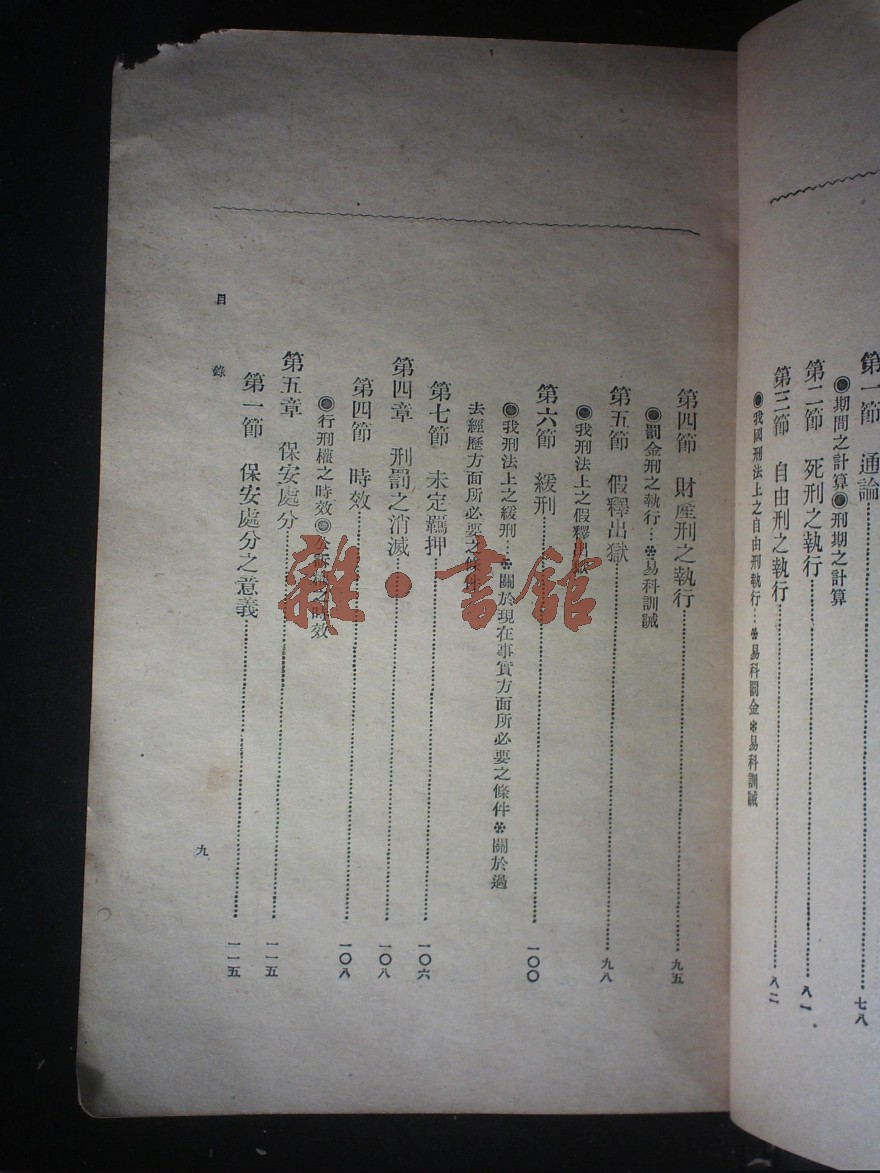 第一節　通論……七八
◉期間之計算◉刑期之計算
第二節　死刑之執行……八一
第三節　自由刑之執行……八二
◉我國刑法上之自由刑執行…＊易科罰金＊易科訓誡
第四節　財產刑之執行……九五
◉罰金刑之執行…＊易科訓誡
第五節　假釋出獄……九八
◉我刑法上之假釋出獄
第六節　緩刑……一〇〇
◉我刑法上之緩刑…＊關於現在事實方面所必要之條件＊關於過
去經歷方面所必要之條件
第七節　未定羈押……一〇六
第四章　刑罰之消滅……一〇八
第四節　時效……一〇八
◉行刑權之時效◉公訴權之時效
第五章　保安處分……一一五
第一節　保安處分之意義……一一五
目錄
九
雜·書館